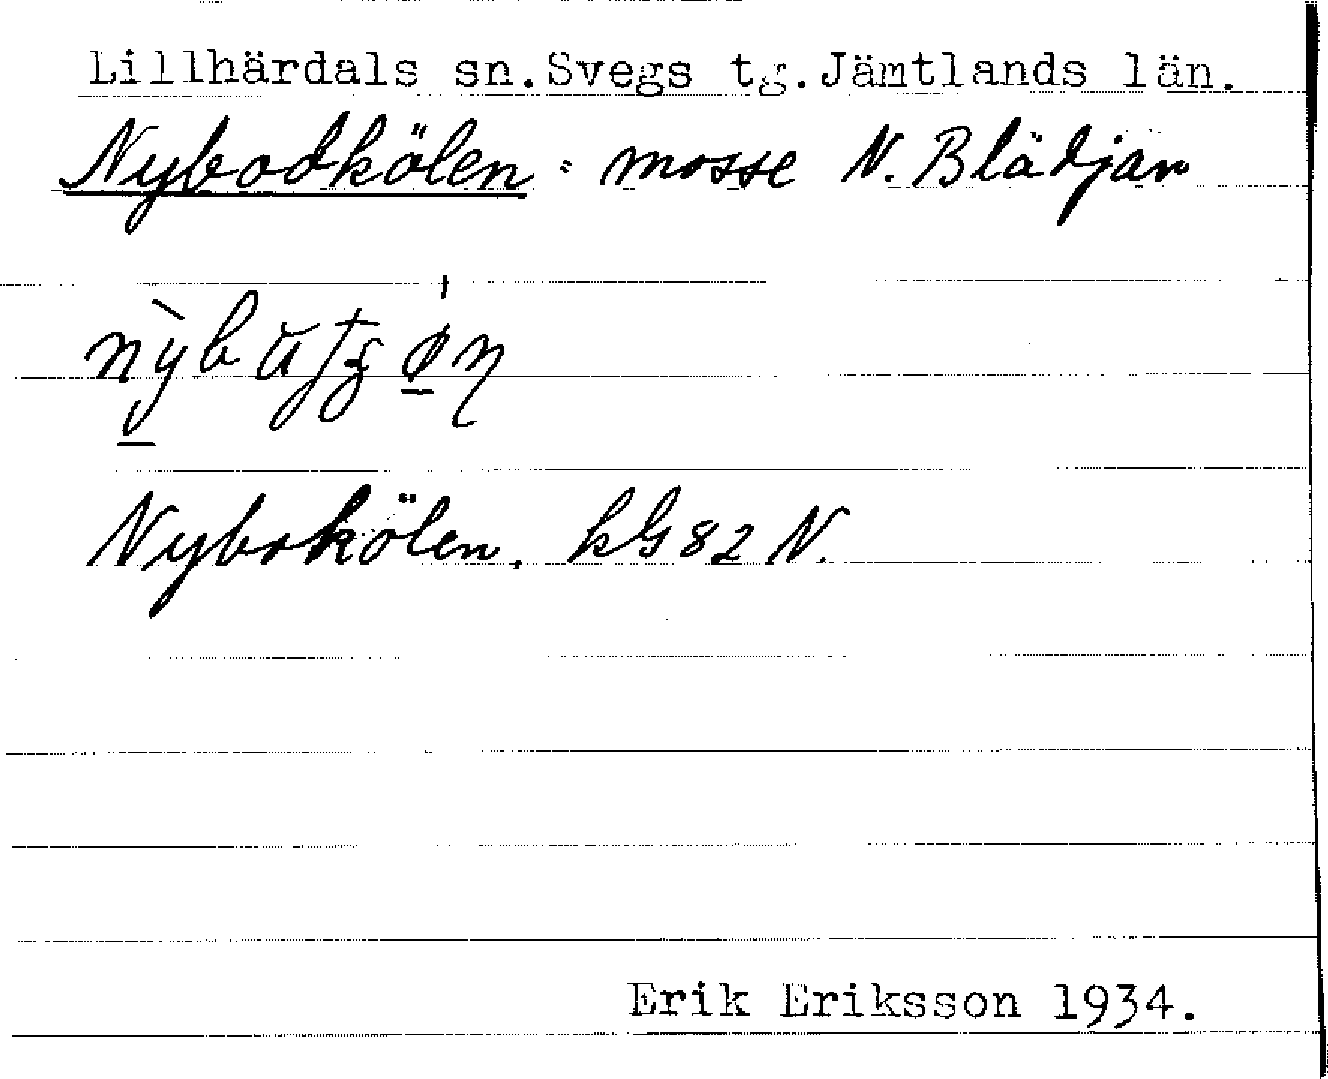 Lillhärdals sn. Svegs tg. Jämtlands län.
Nybodkölen : mosse N. Blädjan
Nybokölen. kG 82 N.
Erik Eriksson 1934.